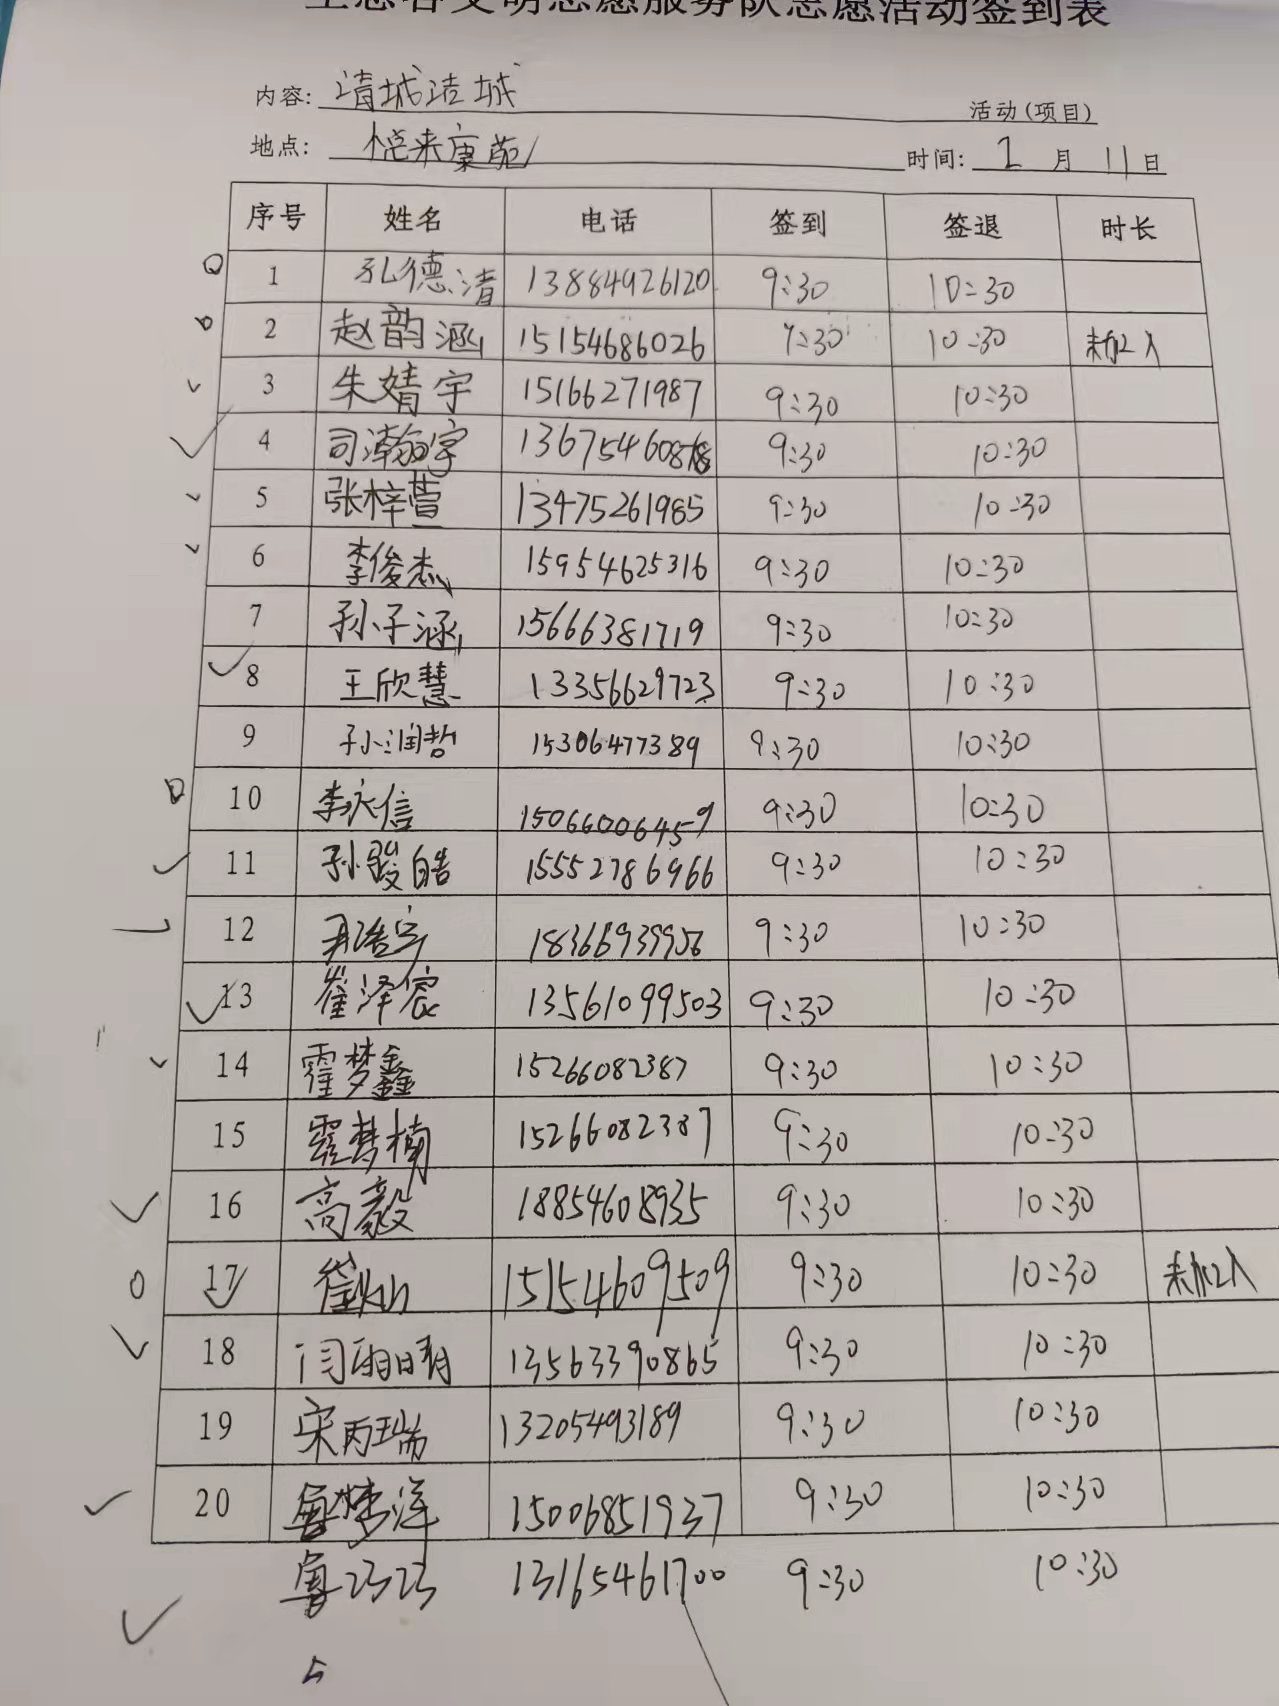 文明志愿服务队志愿活动签到表
内容: 清城洁城 活动(项目)
地点: 悦来康苑 时间: 2 月 11 日
序号 姓名 电话 签到 签退 时长
1 孔德清 13884926120 9:30 10:30
2 赵韵涵 15154686026 9:30 10:30 未加入
3 朱婧宇 15166271987 9:30 10:30
4 司瀚宇 9:30 10:30
5 张梓萱 13475261985 9:30 10:30
6 李俊杰 15954625316 9:30 10:30
7 孙子涵 15666381719 9:30 10:30
8 王欣慧 13356629723 9:30 10:30
9 孙润哲 15306477389 9:30 10:30
10 李永信 15066006459 9:30 10:30
11 孙骏皓 15552786966 9:30 10:30
12 18366939956 9:30 10:30
13 崔泽宸 13561099503 9:30 10:30
14 霍梦鑫 15266082387 9:30 10:30
15 霍梦楠 15266082387 9:30 10:30
16 高毅 18854608935 9:30 10:30
17 崔灿 15154609509 9:30 10:30 未加入
18 闫雨晴 13563390865 9:30 10:30
19 宋丙瑞 13205493189 9:30 10:30
20 鲁梦洋 15006851937 9:30 10:30
鲁 13165461700 9:30 10:30